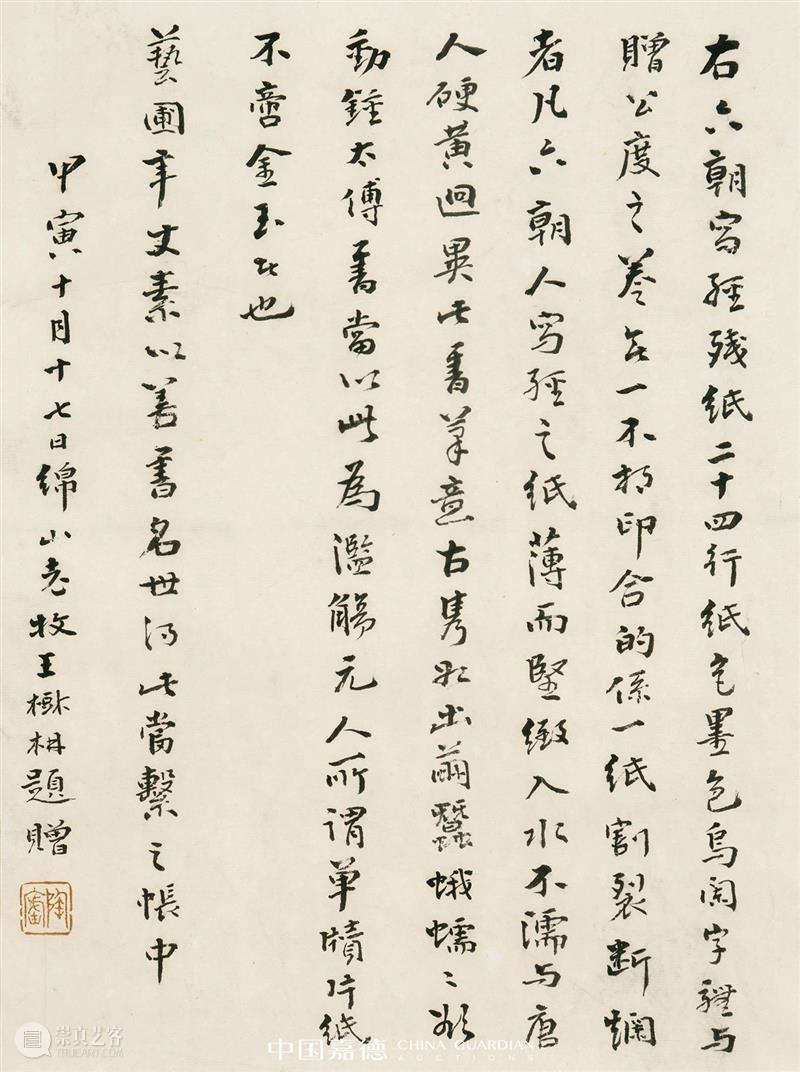 右六朝寫經殘紙二十四行紙色墨色烏闌字體與
贈公度之卷無一不相印合的係一紙割裂斷爛
者凡六朝人寫經之紙薄而堅緻入水不濡與唐
人硬黃迥異此書筆意古雋如出繭蠶蛾蠕〻欲
動鍾太傅書當以此為濫觴元人所謂單牘片紙
不啻金玉比也
藝圃年丈素以善書名世得此當繫之帳中
甲寅十月十七日綿山老牧王樹枏題贈
陶廬
中国嘉德 CHINA GUARDIAN
AUCTIONS
崇真艺客
HTTP://WWW.TRUEART.COM